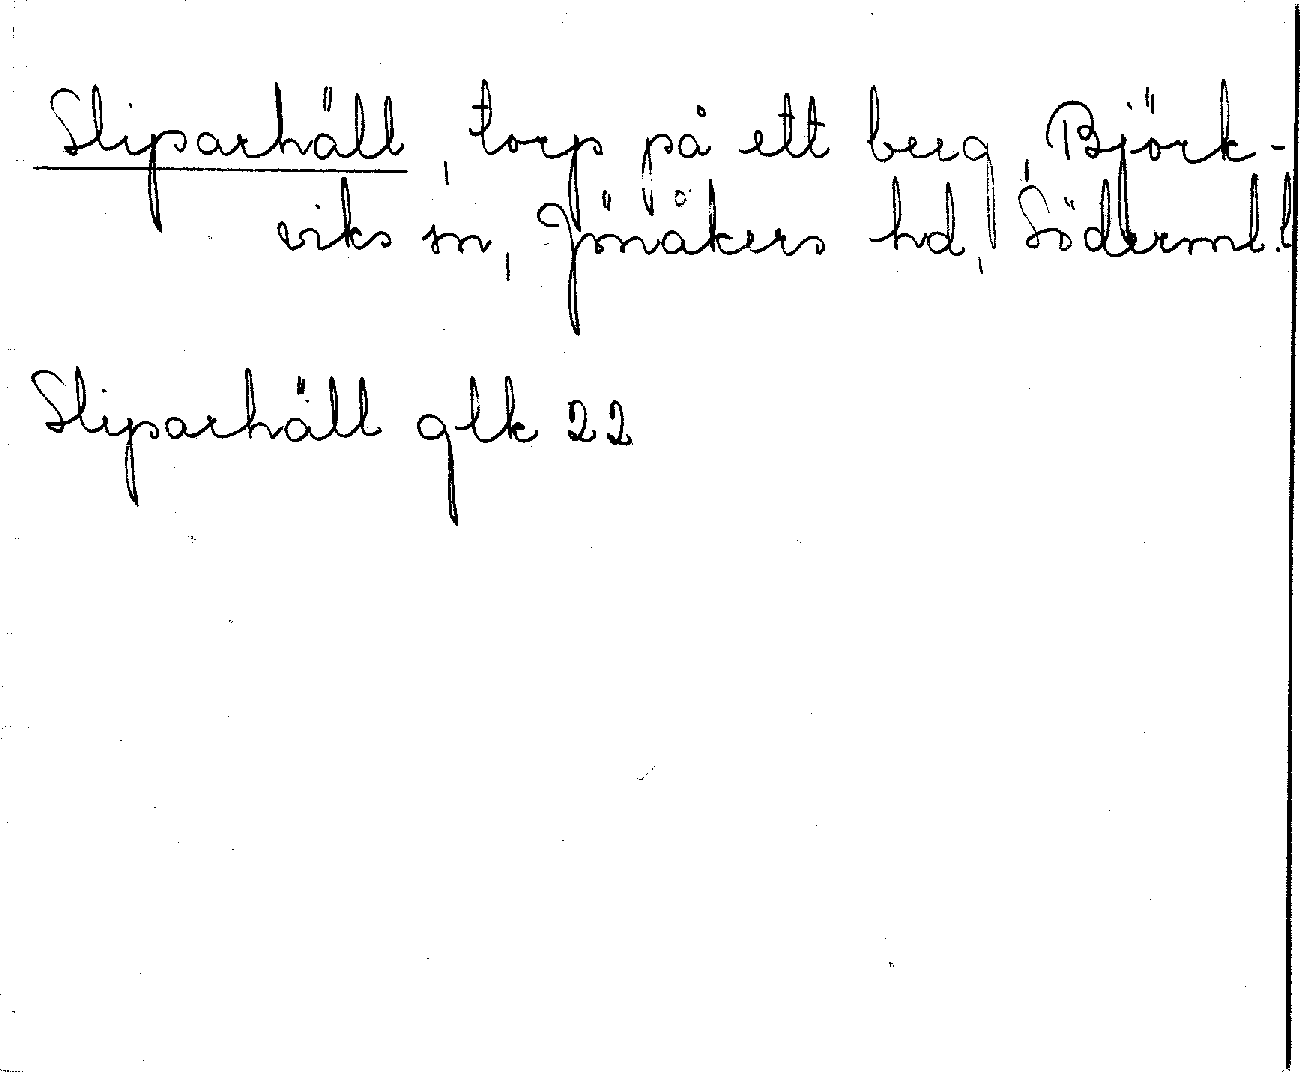 Sliparhäll, torp på ett berg, Björk-
viks sn, Jönåkers hd, Söderml. l
Sliparhäll glk 22